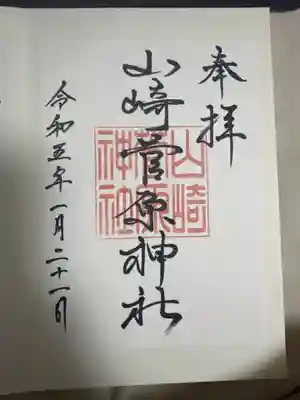 奉拝
山崎菅原神社
山崎菅原神社
令和五年一月二十一日